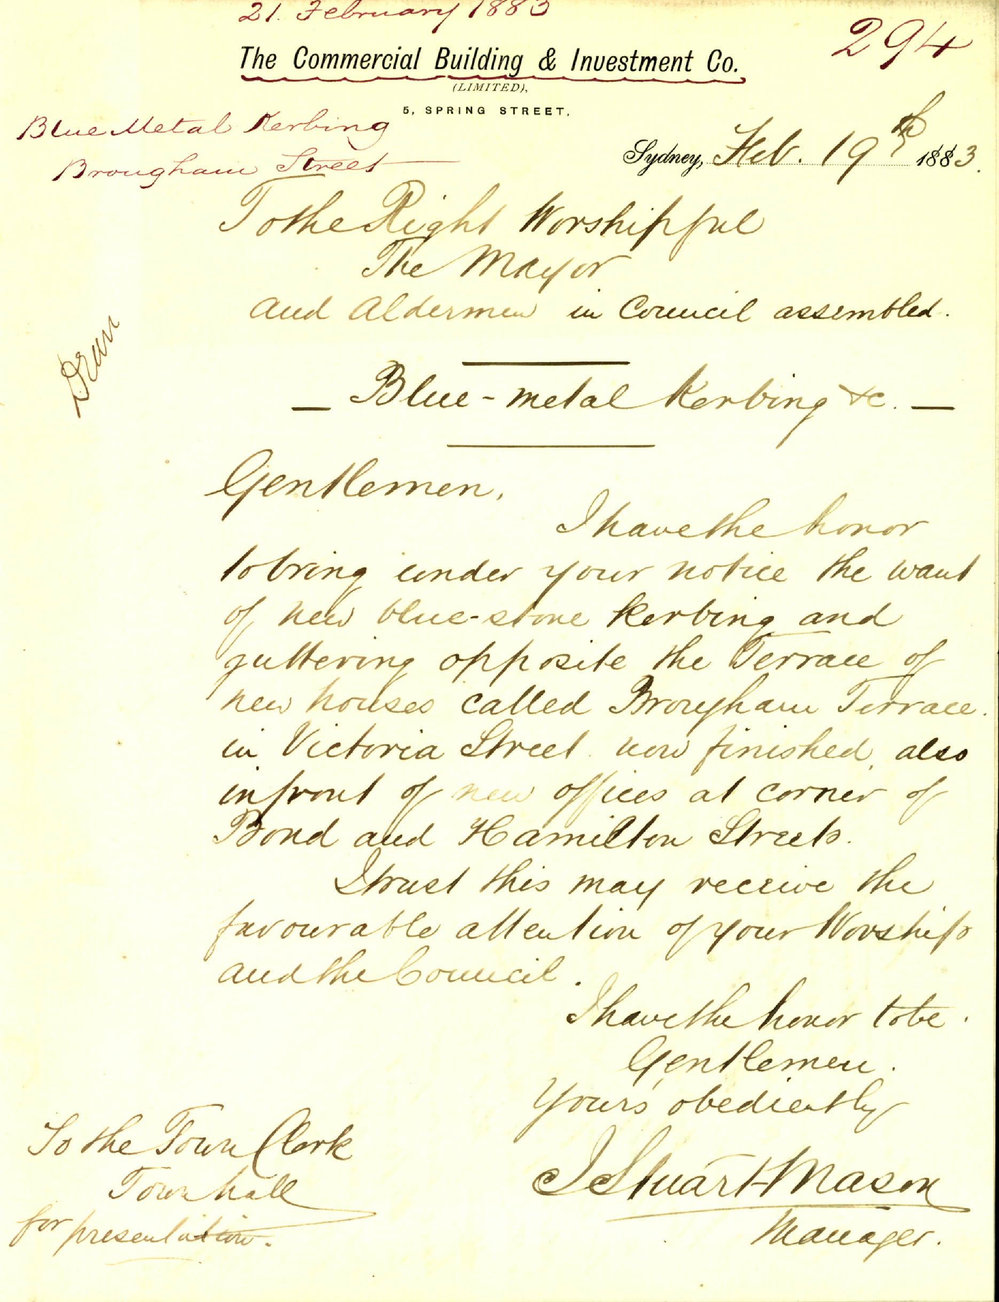 21. February 1883
294
The Commercial Building & Investment Co.
(LIMITED),
5, SPRING STREET,
Blue Metal Kerbing
Brougham Street
Sydney, Feb. 19th 1883.
To the Right Worshipful
The Mayor
and Aldermen in Council assembled.
— Blue-metal Kerbing &c. —
Gentlemen,
I have the honor
to bring under your notice the want
of new blue-stone Kerbing and
guttering opposite the Terrace of
new houses called Brougham Terrace.
in Victoria Street now finished, also
in front of new offices at corner of
Bond and Hamilton Streets.
I trust this may receive the
favourable attention of your Worship
and the Council.
I have the honor to be.
Gentlemen.
Yours obediently
J Stuart Mason
Manager.
To the Town Clerk
Town hall
for presentation.